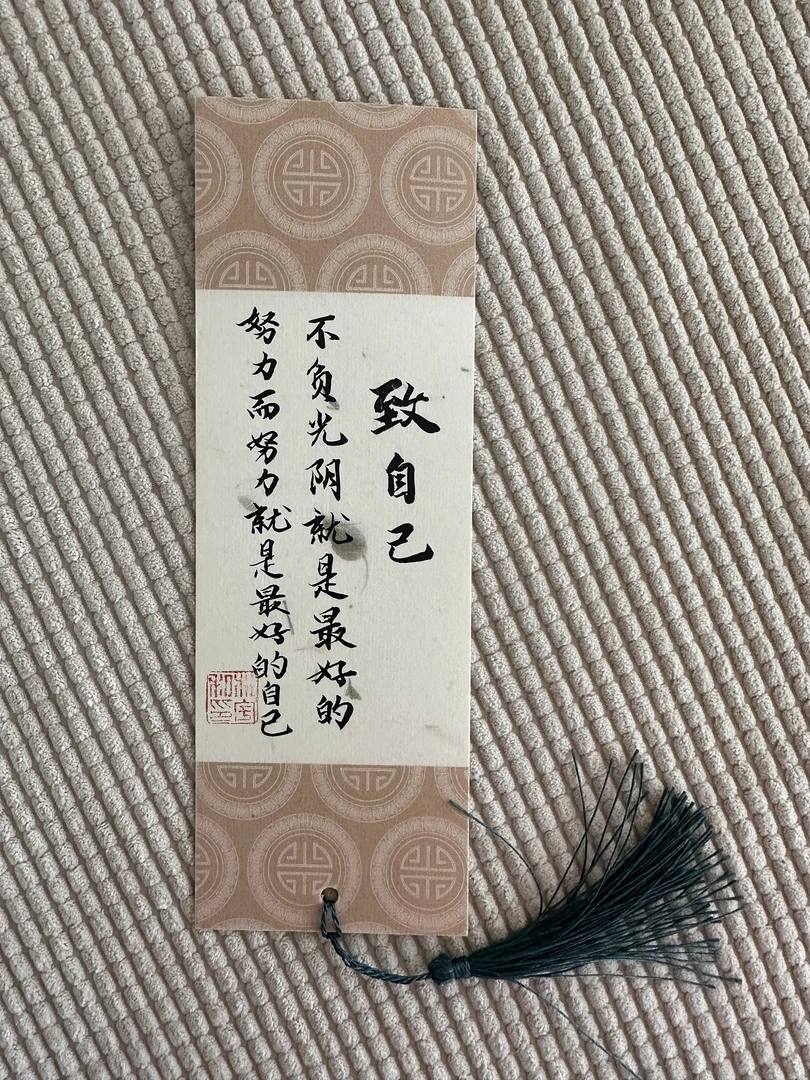 致自己
不负光阴就是最好的
努力而努力就是最好的自己